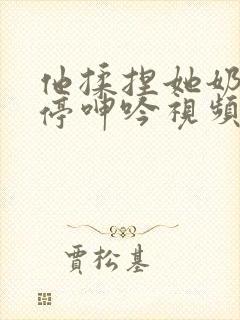 他揉捏她奶
停呻吟視頻
賈松基